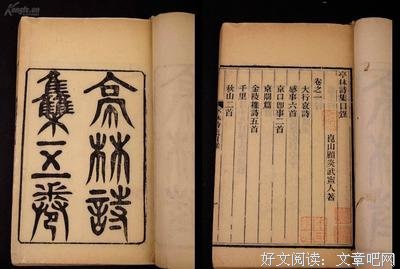 亭林詩
集五卷
亭林詩集目錄
崑山顧炎武寧人著
卷之一
大行哀詩
感事六首
京口即事二首
京闕篇
金陵雜詩五首
千里
秋山二首
好文阅读：文章吧网